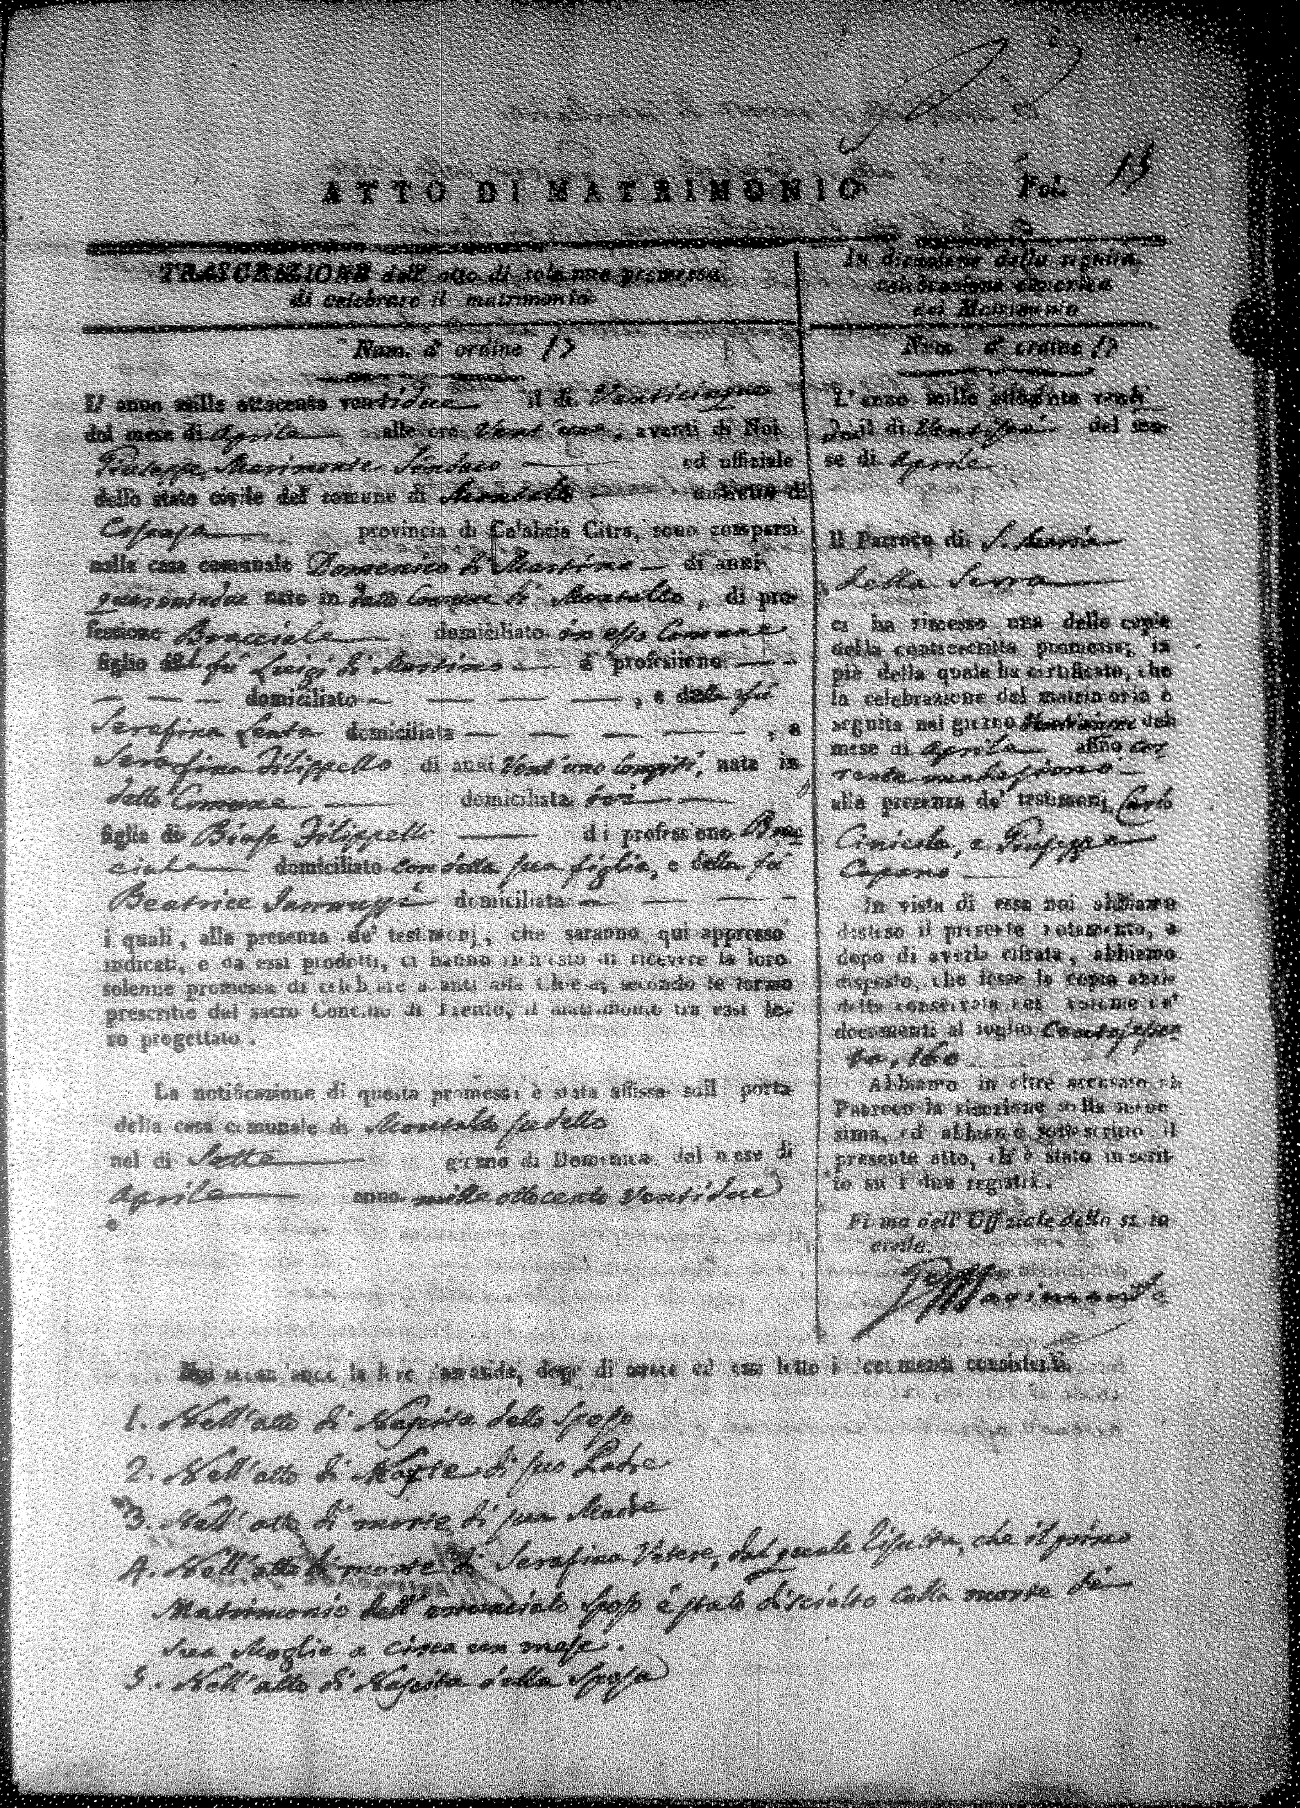 ATTO DI MATRIMONIO Fol. 15
TRASCRIZIONE dell' atto di solenne promessa
di celebrare il matrimonio
Num. d' ordine 15
L' anno mille ottocento ventidue il di Venticinque
del mese di Aprile alle ore Vent' una, avanti di Noi
Giuseppe Marimonte Sindaco ed uffiziale
dello stato civile del comune di Montalto distretto di
Cosenza provincia di Calabria Citra, sono comparsi
nella casa comunale Domenico di Martino di anni
quarantadue nato in detto Comune di Montalto, di pro-
fessione Bracciale domiciliato in esso Comune
figlio del fu Luigi di Martino di professione
domiciliato , e della fu
Serafina Lento domiciliata , e
Serafina Filippello di anni Vent' uno compiti, nata in
detto Comune domiciliata ivi
figlia di Biase Filippello di professione Brac
ciale domiciliato con detta sua figlia, e della fu
Beatrice domiciliata
i quali, alla presenza de' testimonj, che saranno qui appresso
indicati, e da essi prodotti, ci hanno richiesto di ricevere la loro
solenne promessa di celebrare avanti alla Chiesa, secondo le forme
prescritte dal sacro Concilio di Trento, il matrimonio tra essi lo-
ro progettato.
La notificazione di questa promessa è stata affissa sull porta
della casa comunale di Montalto sudetto
nel di Sette giorno di Domenica del mese di
Aprile anno mille ottocento Ventidue
In dicazione della seguita
celebrazione canonica
del Matrimonio
Num. d' ordine 15
L' anno mille ottocento venti
due il di Ventisei del me-
se di Aprile
Il Parroco di S. Maria
della Serra
ci ha rimesso una delle copie
della controscritta promessa, in
piè della quale ha certificato, che
la celebrazione del matrimonio è
seguita nel giorno del
mese di Aprile anno cor
rente medesimo
alla presenza de' testimonj Carlo
Cinicola, e Giuseppe
Capano
In vista di essa noi abbiamo
disteso il presente notamento, e
dopo di averla cifrata, abbiamo
disposto, che fosse la copia anzi-
detta conservata nel volume de'
documenti al foglio Centosessan
ta, 160
Abbiamo in oltre accusato al
Parroco la ricezione della mede-
sima, ed abbiamo sottoscritto il
presente atto, ch' è stato inscrit-
to su i due registri.
Firma dell' Uffiziale dello stato
civile.
Marimonte
Noi secondando la loro domanda, dopo di avere ad essi letto i documenti consistenti.
1. Nell' atto di Nascita dello Sposo
2. Nell' atto di Morte di suo Padre
3. Nell' atto di morte di sua Madre
4. Nell' atto di morte di Serafina Vetere, dal quale liscita, che il primo
Matrimonio dell' enunciato Sposo è stato disciolto colla morte di
sua Moglie a circa un mese.
5. Nell' atto di Nascita della Sposa